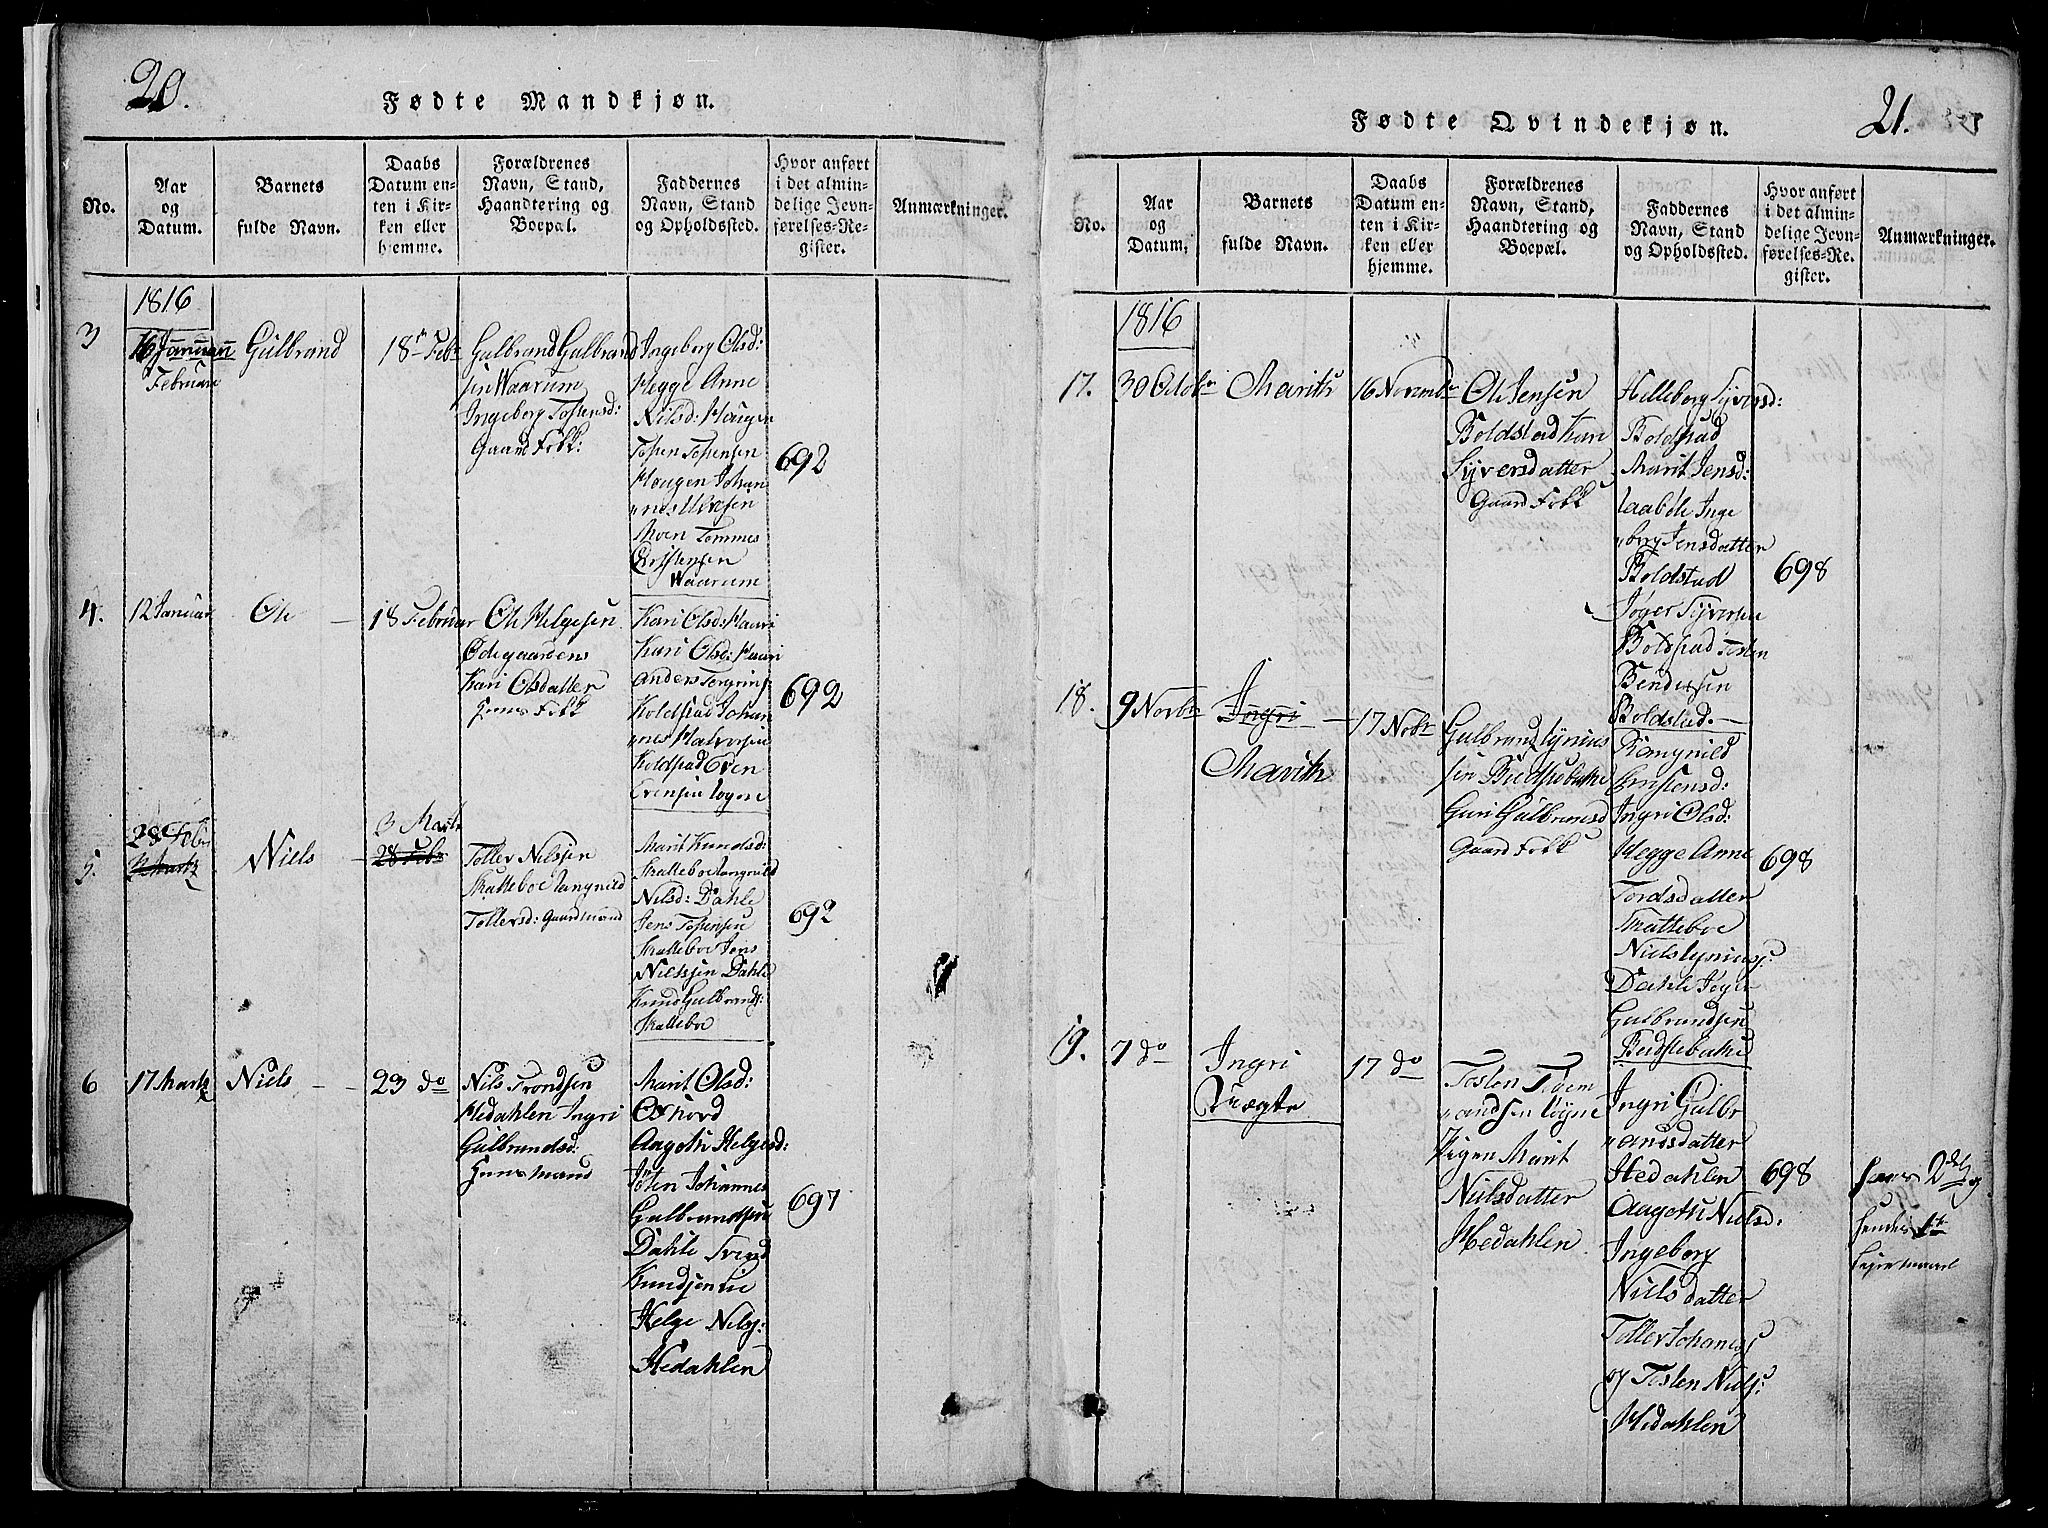 20.
Fødte Mandkjøn.
No.
Aar
og
Datum.
Barnets
fulde Navn.
Daabs
Datum en-
ten i Kir-
ken eller
hjemme.
Forældrenes
Navn, Stand,
Haandtering og
Boepæl.
Faddernes
Navn, Stand
og Opholdssted.
Hvor anført
i det almin-
delige Jevn-
førelses-Re-
gister.
Anmærkninger.
1816
3
16 Januari
Februari
Gulbrand
18 Febr
Gulbrand Gulbrand
sen Waarum
Ingeborg Tostensd:
Gaard Folk:
Ingeborg Olsd:
Hegge Anne
Nilsd: Haugen
Tosten Tostensen
Haugen Johan
"nes Ulvesen
Moen Tommes
Christensen
Waarum
692
4.
12 Januar
Ole
18 Februar
Ole Helgesen
Ødegaardens
Kari Olsdatter
Huus Folk
Kari Olsd: Hauri
Kari Olsd: Hauri
Anders Torgrims:
Koldstad Johan
"nes Halvorsen
Koldstad Even
Evensen Logne
692
5.
28 Febr
3 Marts
Niels
3 Marts
28 Febr
Toller Nilssen
Skatteboe Rangnild
Tollersd: Gaardmænd
Marit Knudsd:
Skatteboe Rangnild
Nilsd: Dahle
Jens Tostensen
Skatteboe Jens
Nielssen Dahle
Knud Gulbrands:
Skatteboe
692
6
17 Marts
Niels
23 do
Nils Trondsen
Hedahlen Ingri
Gulbrandsd:
Huusmænd
Marit Olsd:
Exnord
Aagoth Helgesd:
Joten Johannes
Gulbrandsen
Dahle Trond
Knudsen Lie
Helge Nils:
Hedahlen
697
21.
Fødte Qvindekjøn.
No.
Aar
og
Datum.
Barnets
fulde Navn.
Daabs
Datum en-
ten i Kir-
ken eller
hjemme.
Forældrenes
Navn, Stand,
Haandtering og
Boepæl.
Faddernes
Navn, Stand
og Opholdssted.
Hvor anført
i det almin-
delige Jevn-
førelses-Re-
gister.
Anmærkninger.
1816
17.
30 Octobr
Marith
16 Novembr
Ole Jensen
Boldstad Kari
Syversdatter
Gaard Folk
Helleborg Syversd:
Boldstad
Marit Jensd:
Raabøle Inge
"borg Jensdatter
Boldstad
Joger Syversen
Boldstad Tosten
Bendesen
Boldstad.
698
18.
9 Novbr
Ingri
Marith
17 Nobr
Gulbrand Syrius
sen Beidstebakke
Guri Gulbrandsd
Gaard Folk
Rangnild
Christensd:
Ingri Olsd:
Hegge Anne
Tordsdatter
Skatteboe
Niels Syrius:
Dahle Joger
Gulbrandsen
Beidstebakke
698
19.
7 do
Ingri
Uægte
17 do
Tosten Thom
"andsen Logne
Pigen Marit
Nielsdatter
Hedahlen
Ingri Gulbr
"andsdatter
Hedahlen
Aagoth Nielsd:
Ingeborg
Nielsdatter
Toller Johaness
og Tosten Niels:
Hedahlen
698
hans 2det og
hendes 1te
Leiermaal